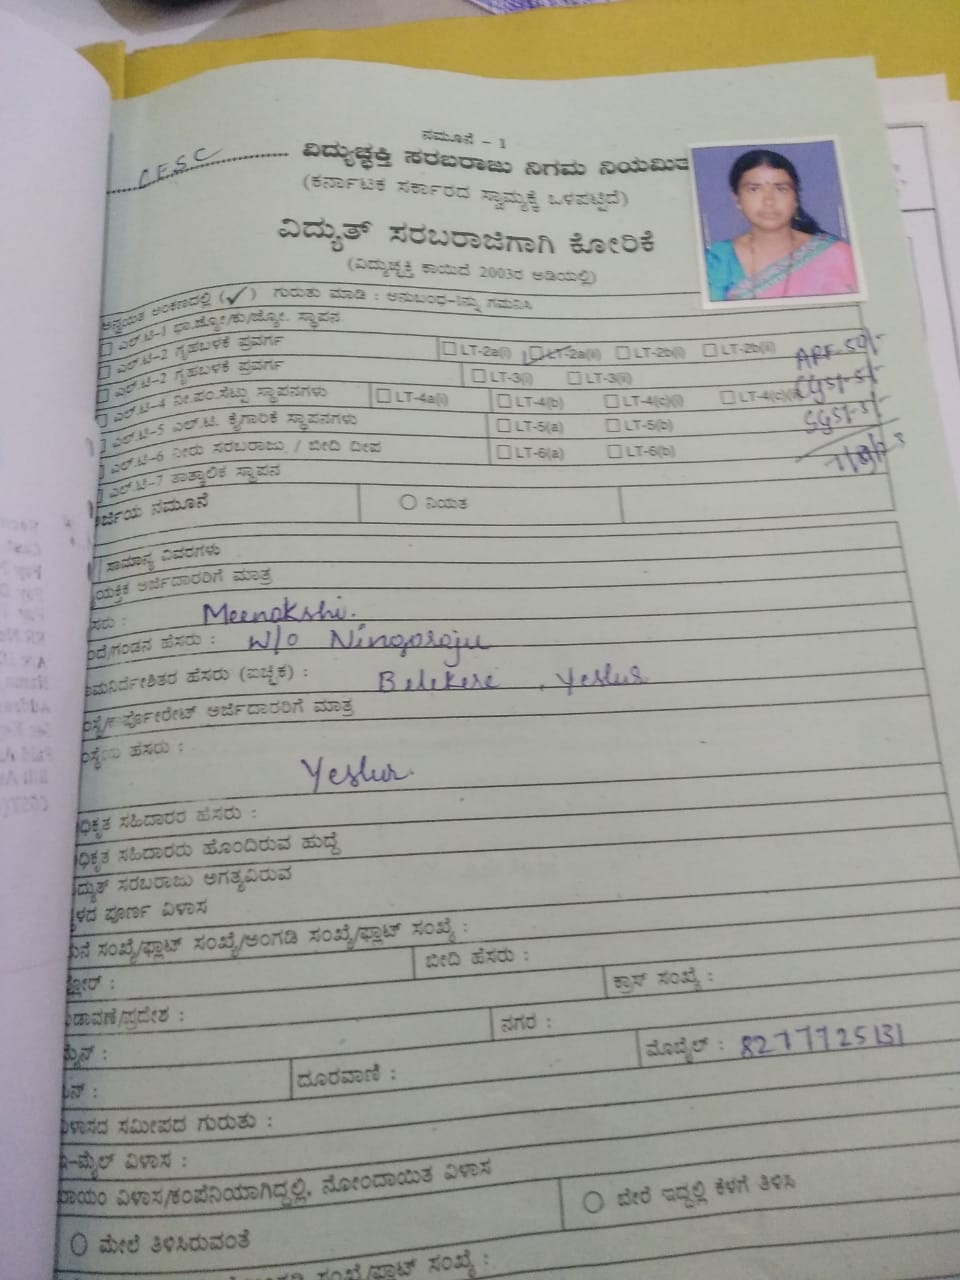 ನಮೂನೆ - 1
CESC ವಿದ್ಯುಚ್ಛಕ್ತಿ ಸರಬರಾಜು ನಿಗಮ ನಿಯಮಿತ
(ಕರ್ನಾಟಕ ಸರ್ಕಾರದ ಸ್ವಾಮ್ಯಕ್ಕೆ ಒಳಪಟ್ಟಿದೆ)
ವಿದ್ಯುತ್ ಸರಬರಾಜಿಗಾಗಿ ಕೋರಿಕೆ
(ವಿದ್ಯುಚ್ಛಕ್ತಿ ಕಾಯಿದೆ 2003ರ ಅಡಿಯಲ್ಲಿ)
ಅನ್ವಯಿತ ಅಂಕಣದಲ್ಲಿ (✓) ಗುರುತು ಮಾಡಿ : ಅನುಬಂಧ-1ನ್ನು ಗಮನಿಸಿ
ಎಲ್.ಟಿ-1 ಭಾ.ಜ್ಯೋ/ಕು/ಜ್ಯೋ. ಸ್ಥಾಪನ
ಎಲ್.ಟಿ-2 ಗೃಹಬಳಕೆ ಪ್ರವರ್ಗ LT-2a(i) LT-2a(ii) LT-2b(i) LT-2b(ii)
APF-50/-
ಎಲ್.ಟಿ-2 ಗೃಹಬಳಕೆ ಪ್ರವರ್ಗ LT-3(i) LT-3(ii)
CGST-5/-
ಎಲ್.ಟಿ-4 ನೀ.ಪಂ.ಸೆಟ್ಟು ಸ್ಥಾಪನಗಳು LT-4a(i) LT-4(b) LT-4(c)(i)
SGST-5/-
ಎಲ್.ಟಿ-5 ಎಲ್.ಟಿ. ಕೈಗಾರಿಕೆ ಸ್ಥಾಪನಗಳು LT-5(a) LT-5(b)
ಎಲ್.ಟಿ-6 ನೀರು ಸರಬರಾಜು / ಬೀದಿ ದೀಪ LT-6(a) LT-6(b)
ಎಲ್.ಟಿ-7 ತಾತ್ಕಾಲಿಕ ಸ್ಥಾಪನ
ನಮೂನೆ ನಿಯತ
ಸಾಮಾನ್ಯ ವಿವರಗಳು
ಅರ್ಜಿದಾರರಿಗೆ ಮಾತ್ರ
Meenakshi.
ಹೆಸರು : W/o Ningaraju
ಹೆಸರು (ಐಚ್ಛಿಕ) : Belekere , Yeslur
ಅರ್ಜಿದಾರರಿಗೆ ಮಾತ್ರ
ಹೆಸರು :
Yeslur.
ಸಹಿದಾರರ ಹೆಸರು :
ಸಹಿದಾರರು ಹೊಂದಿರುವ ಹುದ್ದೆ
ಸರಬರಾಜು ಅಗತ್ಯವಿರುವ
ಪೂರ್ಣ ವಿಳಾಸ
ಸಂಖ್ಯೆ/ಫ್ಲಾಟ್ ಸಂಖ್ಯೆ/ಅಂಗಡಿ ಸಂಖ್ಯೆ/ಫ್ಲಾಟ್ ಸಂಖ್ಯೆ :
ಬೀದಿ ಹೆಸರು :
ಕ್ರಾಸ್ ಸಂಖ್ಯೆ :
ನಗರ :
ದೂರವಾಣಿ : ಮೊಬೈಲ್ : 8277725131
ಸಮೀಪದ ಗುರುತು :
ವಿಳಾಸ :
ವಿಳಾಸ/ಕಂಪೆನಿಯಾಗಿದ್ದಲ್ಲಿ, ನೋಂದಾಯಿತ ವಿಳಾಸ
ಮೇಲೆ ತಿಳಿಸಿರುವಂತೆ ಬೇರೆ ಇದ್ದಲ್ಲಿ ಕೆಳಗೆ ತಿಳಿಸಿ
ಸಂಖ್ಯೆ/ಫ್ಲಾಟ್ ಸಂಖ್ಯೆ :